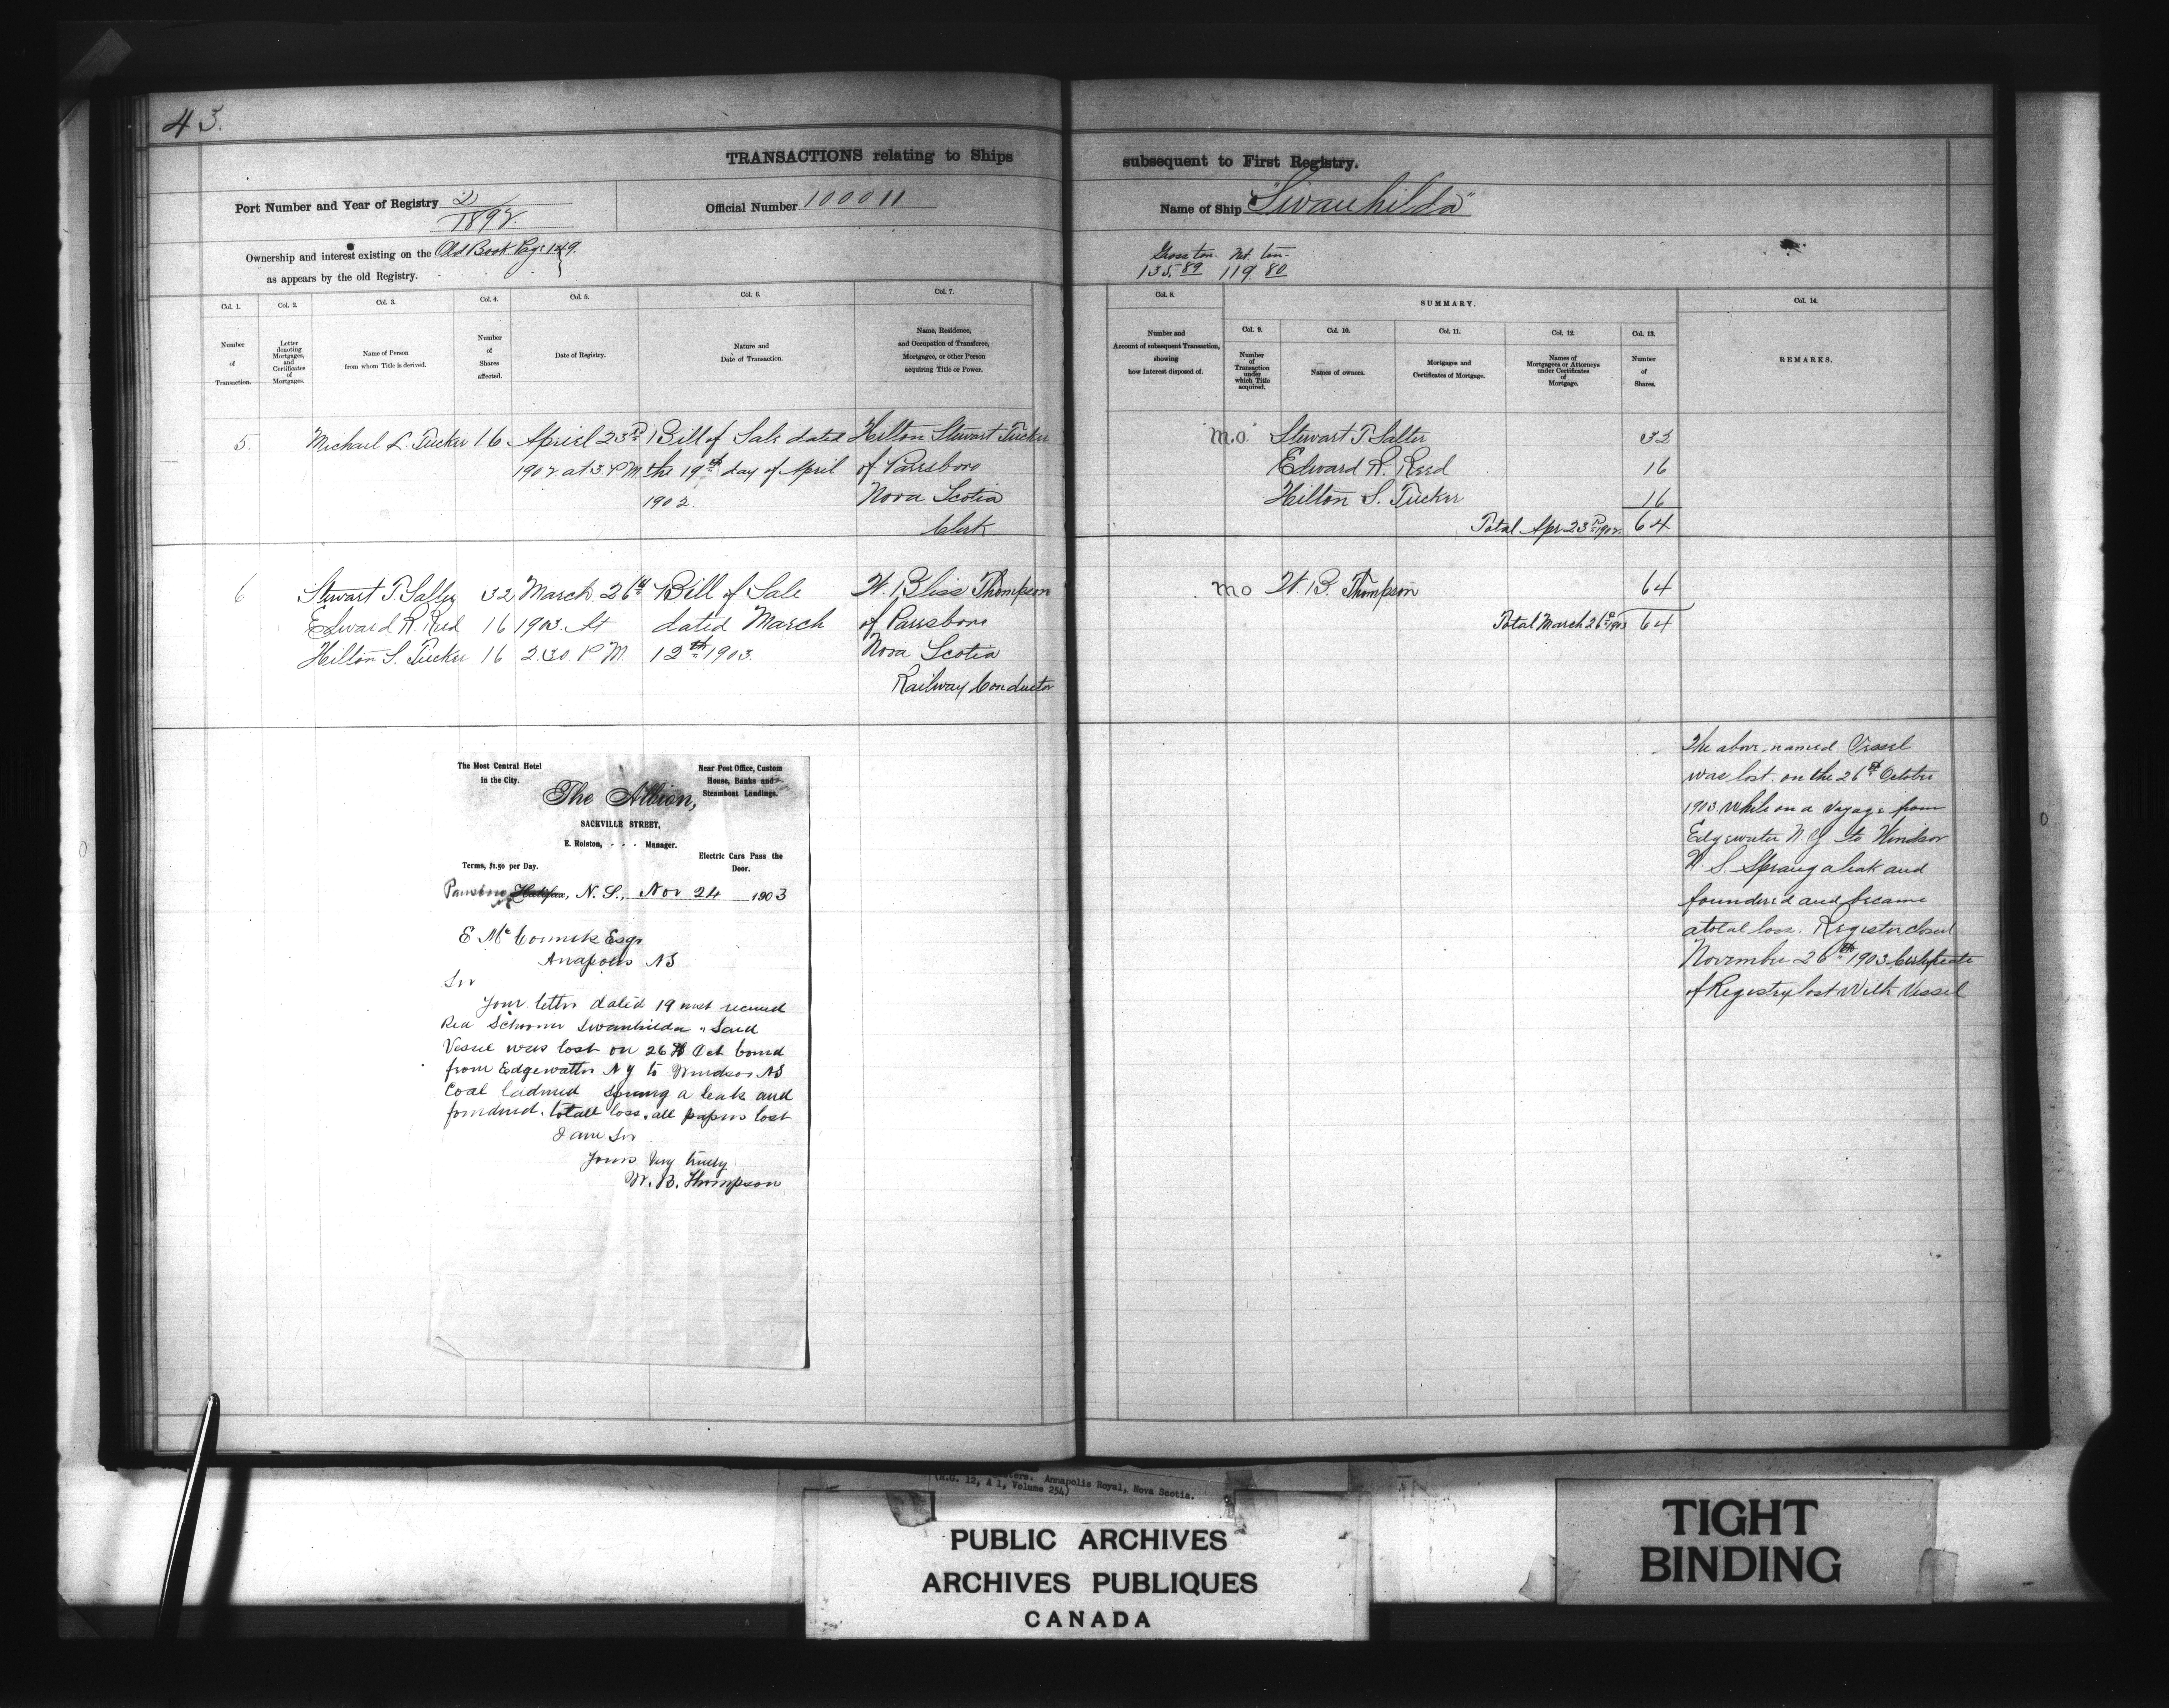 43.
TRANSACTIONS relating to Ships
subsequent to First Registry.
Port Number and Year of Registry 2/1892.
Official Number 100011
Name of Ship "Swanhilda"
Ownership and interest existing on the Old Book Page 149.
as appears by the old Registry.
Gross ton. Net. ton.
135.89 119.80
Col. 1.
Number
of
Transaction.
Col. 2.
Letter
denoting
Mortgages,
and
Certificates
of
Mortgages.
Col. 3.
Name of Person
from whom Title is derived.
Col. 4.
Number
of
Shares
affected.
Col. 5.
Date of Registry.
Col. 6.
Nature and
Date of Transaction.
Col. 7.
Name, Residence,
and Occupation of Transferee,
Mortgagee, or other Person
acquiring Title or Power.
Col. 8.
Number and
Account of subsequent Transaction,
showing
how Interest disposed of.
SUMMARY.
Col. 9.
Number
of
Transaction
under
which Title
acquired.
Col. 10.
Names of owners.
Col. 11.
Mortgages and
Certificates of Mortgage.
Col. 12.
Names of
Mortgagees or Attorneys
under Certificates
of
Mortgage.
Col. 13.
Number
of
Shares.
Col. 14.
REMARKS.
5. Michael L. Tucker 16 Apriel 23rd Bill of Sale dated Hilton Stewart Tucker
1902 at 3 P.M. the 19th day of April of Parrsboro
1902. Nova Scotia
Clerk
M.O. Stewart T. Salter 32
Edward R. Reed 16
Hilton S. Tucker 16
Total Apr 23rd 1902. 64
6 Stewart T. Salter 32 March 26th Bill of Sale W. Bliss Thompson
Edward R. Reed 16 1903. At dated March of Parrsboro
Hilton S. Tucker 16 2.30 P.M. 12th 1903. Nova Scotia
Railway Conductor
MO W. B. Thompson 64
Total March 26th 1903 64
The Most Central Hotel
in the City.
Near Post Office, Custom
House, Banks and
Steamboat Landings.
The Albion,
SACKVILLE STREET,
E. Rolston, - - - Manager.
Terms, $1.50 per Day.
Electric Cars Pass the
Door.
Parrsboro Halifax, N. S., Nov 24 1903
E McCormick Esqr
Anapolis NS
Sir
Your letter dated 19 inst received
Red Schooner Swanhilda " Said
Vessel was lost on 26th Oct bound
from Edgewatter N Y to Windsor NS
Coal ladened sprung a leak and
foundered. totall loss. all papers lost
I am Sir
Yours Very truely
W. B. Thompson
The above-named Vessel
was lost. on the 26th October
1903. While on a voyage from
Edgewater N.Y to Windsor
N. S. Sprang a leak and
foundered and became
a total loss. Register closed
November 26th 1903. Certificate
of Registry lost With Vessel
Annapolis Royal, Nova Scotia.
(R.G. 12, A 1, Volume 254)
PUBLIC ARCHIVES
ARCHIVES PUBLIQUES
CANADA
TIGHT
BINDING